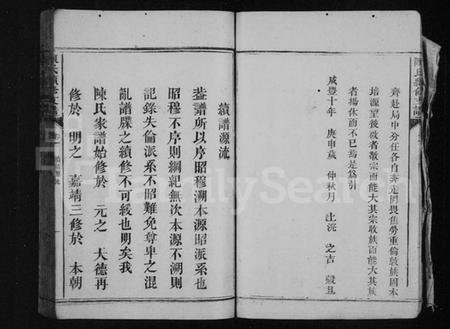 陳氏續修支譜
齊赴局中分任各自奔走罔畏焦勞重倫敦固本
培源望後啟者敬宗而能大其宗收族而能大其族
者揚休而不已焉是爲引
咸豐十年 庚申歲 仲秋月 上浣 之吉 穀旦
續譜源流
譜所以序昭穆溯本源昭派系也
昭穆不序則綱紀無次本源不溯則
記錄失倫派系不昭難免尊卑之混
亂譜牒之續修不可緩也明矣我
陳氏家譜始修於 元之 大德再
修於 明之 嘉靖三修於 本朝
FamilySearch